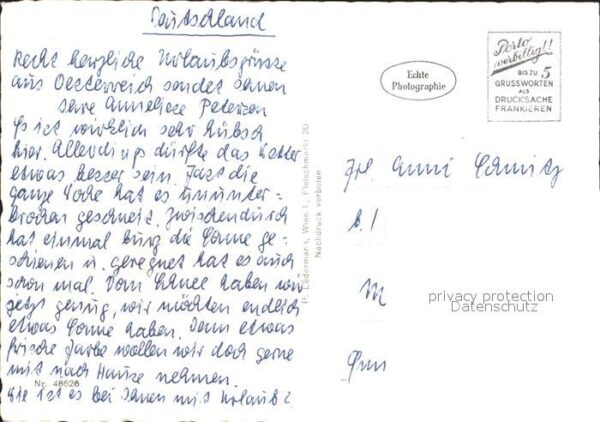 Deutschland
Recht herzliche Urlaubsgrüsse
aus Oesterreich sendet Ihnen
Ihre Anneliese Petersen
Es ist wirklich sehr hübsch
hier. Allerdings dürfte das Wetter
etwas besser sein. Fast die
ganze Woche hat es ununter-
brochen geschneit. Zwischendurch
hat einmal kurz die Sonne ge-
schienen u. geregnet hat es auch
schon mal. Vom Schnee haben wir
jetzt genug, wir möchten endlich
etwas Sonne haben. Denn etwas
frische Farbe wollen wir doch gerne
mit nach Hause nehmen.
Wie ist es bei Ihnen mit Urlaub?
Nr. 48626
P. Ledermann, Wien I., Fleischmarkt 20
Nachdruck verboten
Echte
Photographie
Porto
verbilligt!!
BIS ZU 5
GRUSSWORTEN
ALS
DRUCKSACHE
FRANKIEREN
Frl. Anni Schmitz
M
privacy protection
Datenschutz